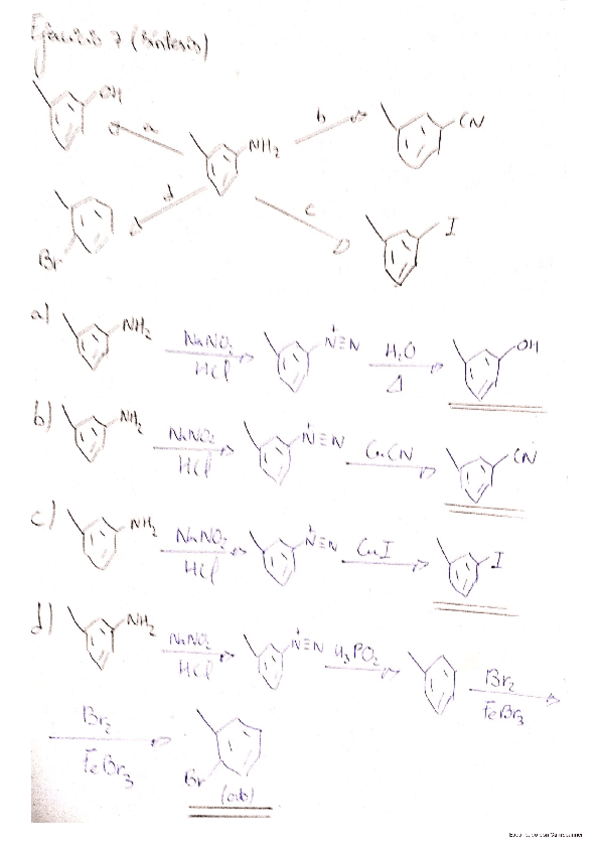 Ejercicio 7 (Síntesis)
OH
a
NH₂
b
CN
d
Br
c
I
a)
NH₂
NaNO₂
HCl
N⁺≡N
H₂O
Δ
OH
b)
NH₂
NaNO₂
HCl
N⁺≡N
CuCN
CN
c)
NH₂
NaNO₂
HCl
N⁺≡N
CuI
I
d)
NH₂
NaNO₂
HCl
N⁺≡N
H₃PO₂
Br₂
FeBr₃
Br₂
FeBr₃
Br